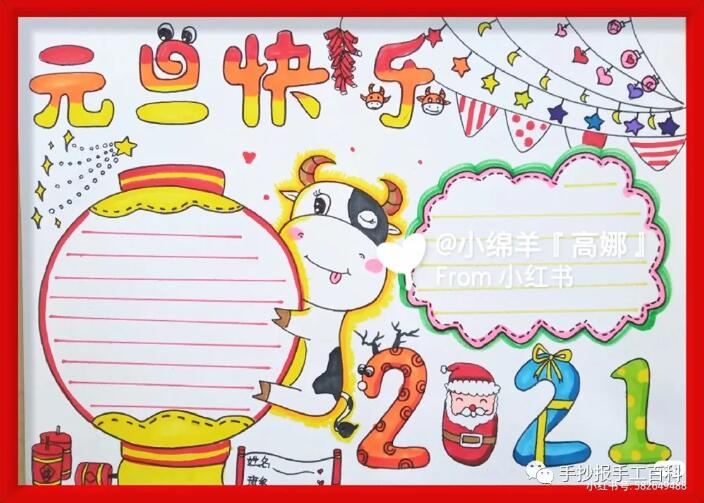 元旦快乐
@小绵羊『高娜』
From 小红书
2021
姓名
班级
手抄报手工百科
小红书号: 582649488